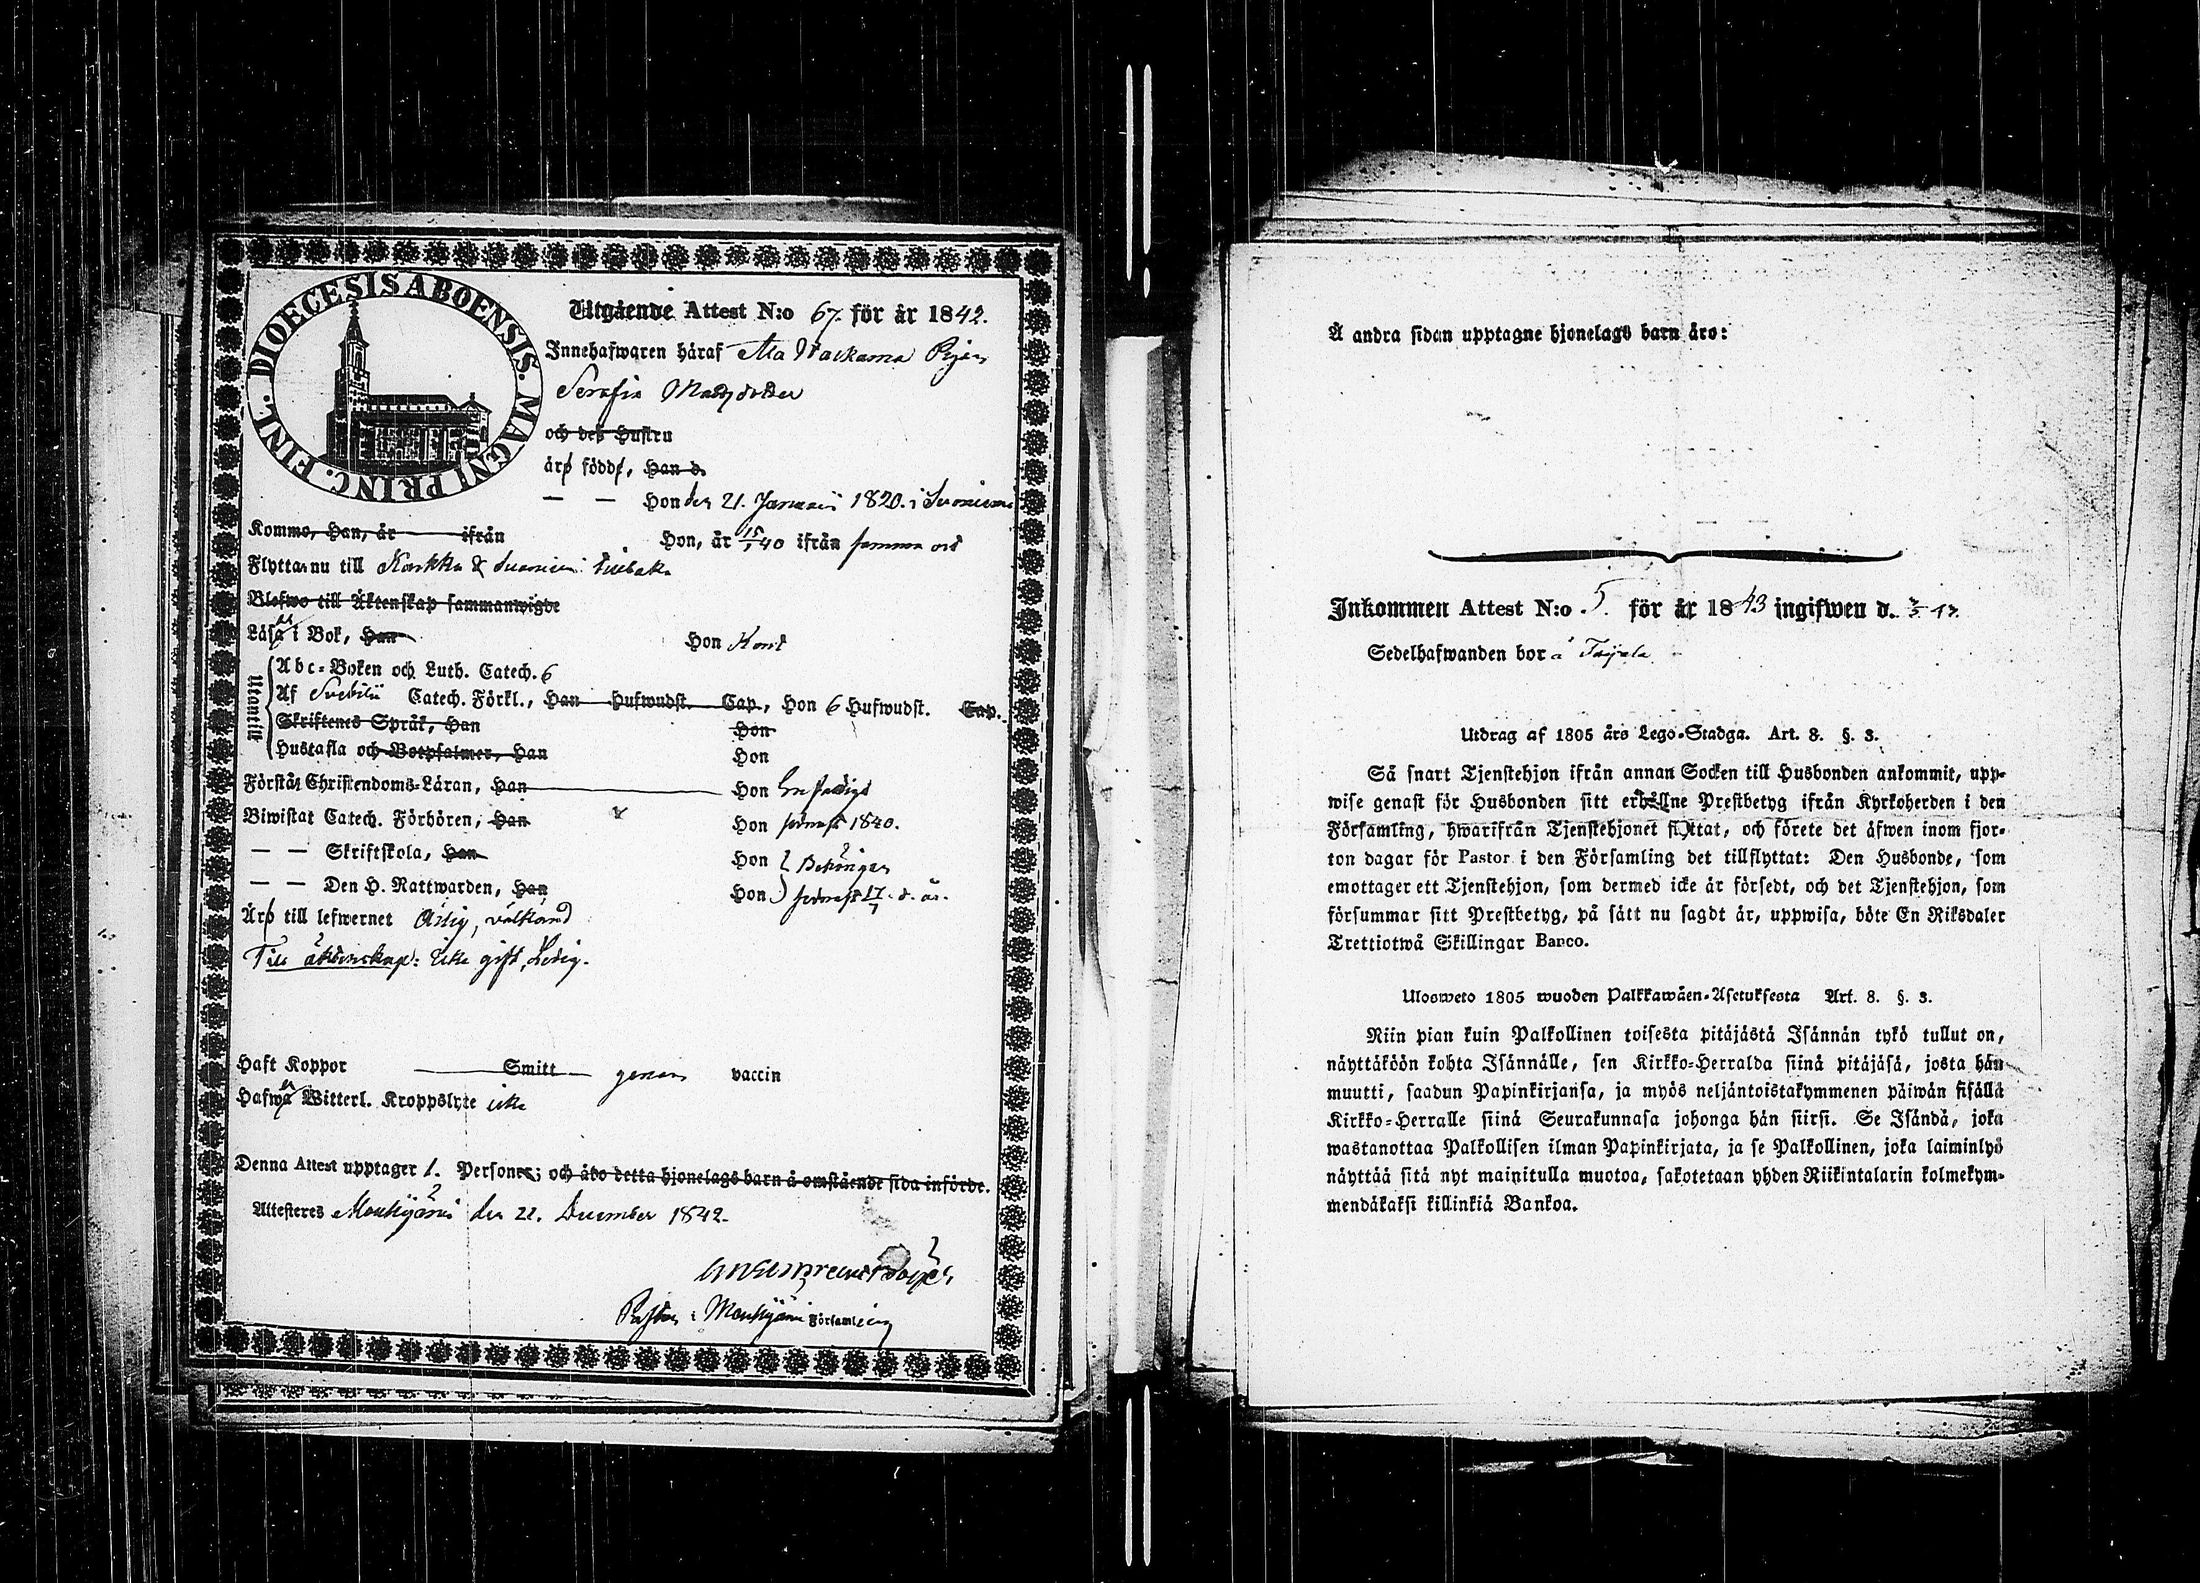 DIOECESIS ABOENSIS. MAGNI PRINC. FINL.
Utgående Attest N:o 67. för år 1842.
Innehafwaren häraf Ala Pigan
Serafia Matsdotter
och deß Hustru
äro födde, Han d.
— — Hon den 21. Januarii 1820. i Suoniemi
Kommo, Han, år ifrån Hon, år 15/1 40 ifrån samma ort
Flyttar nu till Karkku & Suoniemi tillbaka
Blefwo till Äktenskap sammanwigde
Läser i Bok, Han Hon Kont
Utantill
Abc-Boken och Luth. Catech. 6
Af Svebilii Catech. Förkl., Han Hufwudst. Cap., Hon 6 Hufwudst. Cap.
Skriftenes Språk, Han Hon
Hustafla och Botpsalmer, Han Hon
Förstår Christendoms-Läran, Han Hon Enfaldigt
Biwistat Catech. Förhören, Han Hon sednast 1840.
— — Skriftskola, Han Hon Behörigen
— — Den H. Nattwarden, Han Hon sednast 17/7 d. år.
Äro till lefwernet Ärlig, välkänd
Till äktenskap: icke gift, Ledig.
Haft Koppor Smitt genom vaccin
Hafwer Witterl. Kroppslyte icke
Denna Attest upptager 1. Person; och äro detta hjonelags barn å omstående sida införde.
Attesteres Mouhijärvi den 22. December 1842.
Pastor i Mouhijärvi Församling
Å andra sidan upptagne hjonelags barn äro:
Inkommen Attest N:o 5 för år 1843 ingifwen d.
Sedelhafwanden bor å
Utdrag af 1805 års Lego-Stadga. Art. 8. §. 3.
Så snart Tjenstehjon ifrån annan Socken till Husbonden ankommit, upp-
wise genast för Husbonden sitt erhållne Prestbetyg ifrån Kyrkoherden i den
Församling, hwarifrån Tjenstehjonet flyttat, och förete det äfwen inom fjor-
ton dagar för Pastor i den Församling det tillflyttat: Den Husbonde, som
emottager ett Tjenstehjon, som dermed icke är försedt, och det Tjenstehjon, som
försummar sitt Prestbetyg, på sätt nu sagdt är, uppwisa, böte En Riksdaler
Trettiotwå Skillingar Banco.
Ulosweto 1805 wuoden Palkkawäen-Asetuksesta Art. 8. §. 3.
Niin pian kuin Palkollinen toisesta pitäjästä Isännän tykö tullut on,
näyttäköön kohta Isännälle, sen Kirkko-Herralda siinä pitäjäsä, josta hän
muutti, saadun Papinkirjansa, ja myös neljäntoistakymmenen päiwän sisällä
Kirkko-Herralle siinä Seurakunnasa johonga hän siirsi. Se Isändä, joka
wastanottaa Palkollisen ilman Papinkirjata, ja se Palkollinen, joka laiminlyö
näyttää sitä nyt mainitulla muotoa, sakotetaan yhden Riikintalarin kolmekym-
mendäkaksi killinkiä Bankoa.